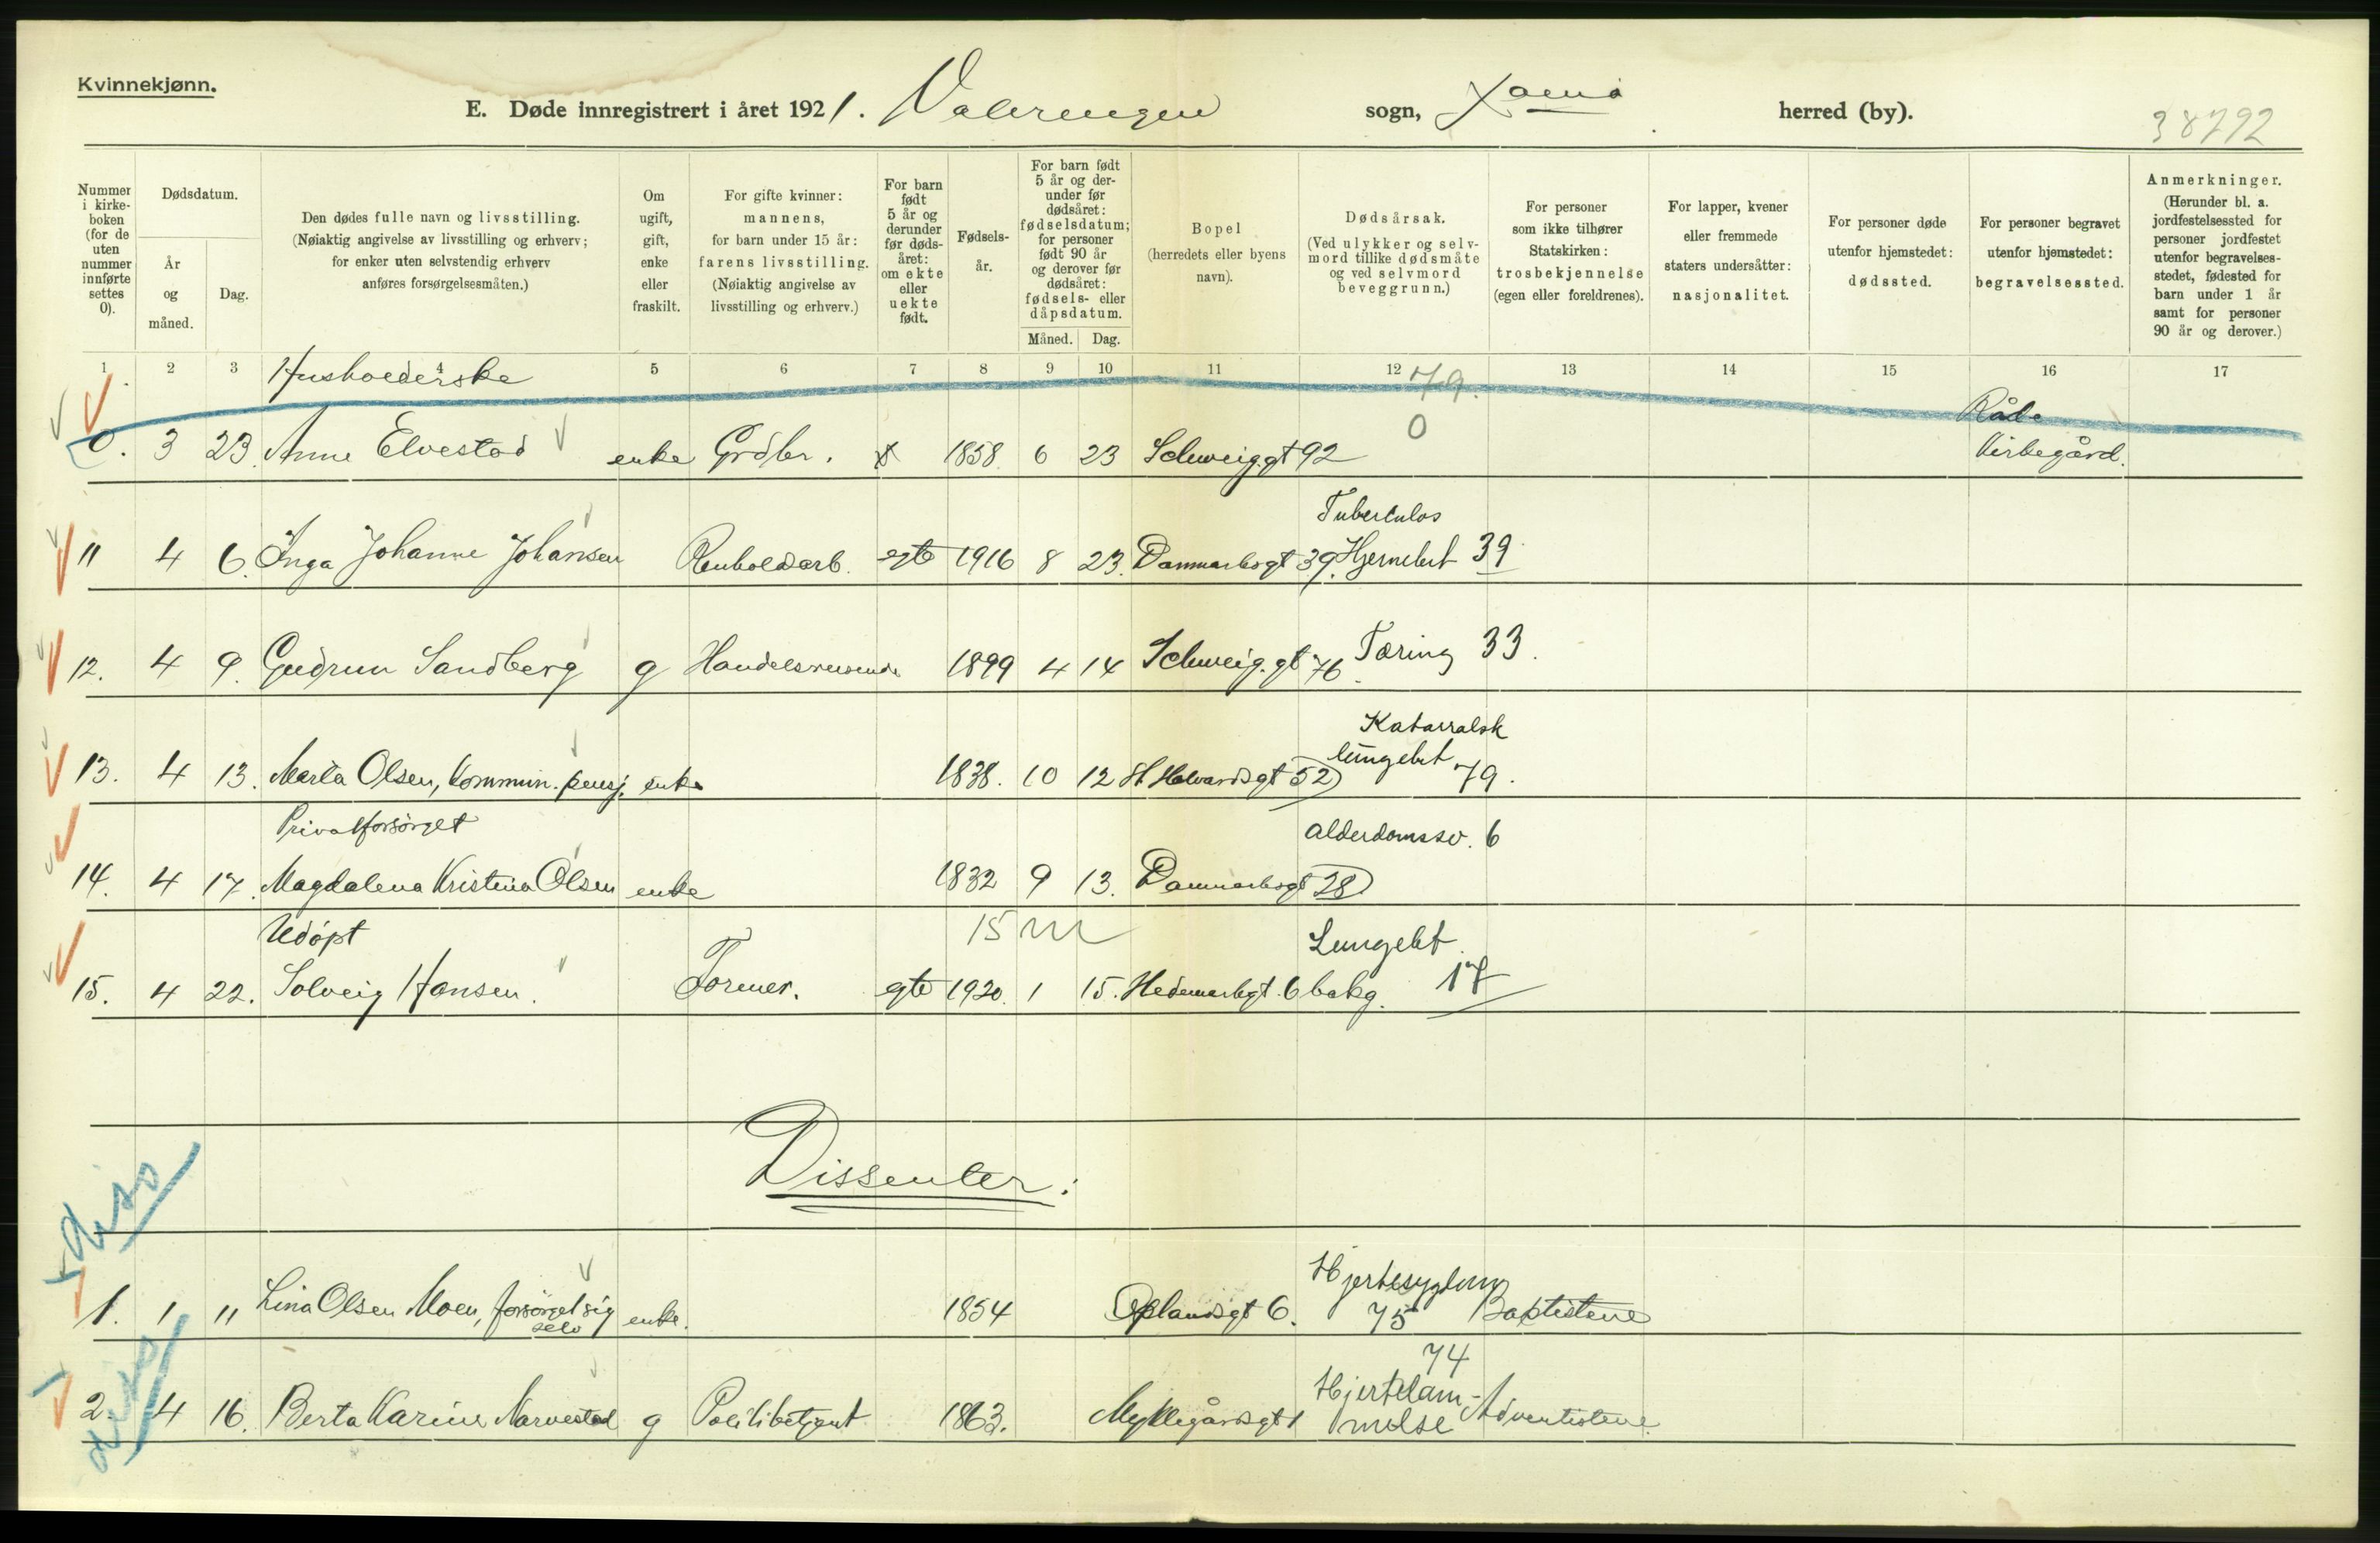 Kvinnekjønn.
E. Døde innregistrert i året 1921. Valerengen sogn, Xania herred (by).
38792
Nummer i kirke-boken (for de uten nummer innførte settes 0).
Dødsdatum.
År og måned.
Dag.
Den dødes fulle navn og livsstilling. (Nøiaktig angivelse av livsstilling og erhverv; for enker uten selvstendig erhverv anføres forsørgelsesmåten.)
Om ugift, gift, enke eller fraskilt.
For gifte kvinner: mannens, for barn under 15 år: farens livsstilling. (Nøiaktig angivelse av livsstilling og erhverv.)
For barn født 5 år og derunder før døds-året: om ekte eller uekte født.
Fødsels-år.
For barn født 5 år og der-under før dødsåret: fødselsdatum; for personer født 90 år og derover før dødsåret: fødsels- eller dåpsdatum.
Måned. Dag.
Bopel (herredets eller byens navn).
Dødsårsak. (Ved ulykker og selv-mord tillike dødsmåte og ved selvmord beveggrunn.)
For personer som ikke tilhører Statskirken: trosbekjennelse (egen eller foreldrenes).
For lapper, kvener eller fremmede staters undersåtter: nasjonalitet.
For personer døde utenfor hjemstedet: dødssted.
For personer begravet utenfor hjemstedet: begravelsessted.
Anmerkninger. (Herunder bl. a. jordfestelsessted for personer jordfestet utenfor begravelses-stedet, fødested for barn under 1 år samt for personer 90 år og derover.)
1 2 3 4 5 6 7 8 9 10 11 12 13 14 15 16 17
Husholderske 79. Råde
0. 3 23. Anne Elvestad enke Grdbr. 1858. 6 23 Schweig.gt 92 0 Kirkegård.
Tuberkulos
11 4 6. Inga Johanne Johansen Renholdarb. egte 1916 8 23. Danmarksgt 39. Hjernebet 39
12. 4 9. Gudrun Sandberg g Handelsreisende 1899 4 14 Schweig.gt 76. Tæring 33.
Katarralsk
13. 4 13. Marta Olsen, Kommun. pensj. enke 1838. 10 12 St Halvardsgt 52 lungebet 79.
Privatforsørget alderdomssv. 6
14. 4 17. Magdalena Kristina Olsen enke 1832 9 13. Danmarksgt 28
Udøpt 15 m Lungebet.
15. 4 22. Solveig Hansen. Former. egte 1920. 1 15. Hedemarkgt. 6 bakg. 17
Dissenter:
diss
Hjertesygdom
1. 1 11 Lina Olsen Moen, forsørget sig selv enke. 1854 Oplandsgt 6. 75 Baptistene
diss
74
2. 4 16. Berta Karine Narvestad g Politibetjent 1863. Myklegårdsgt 1 Hjertelam-melse Adventistene.